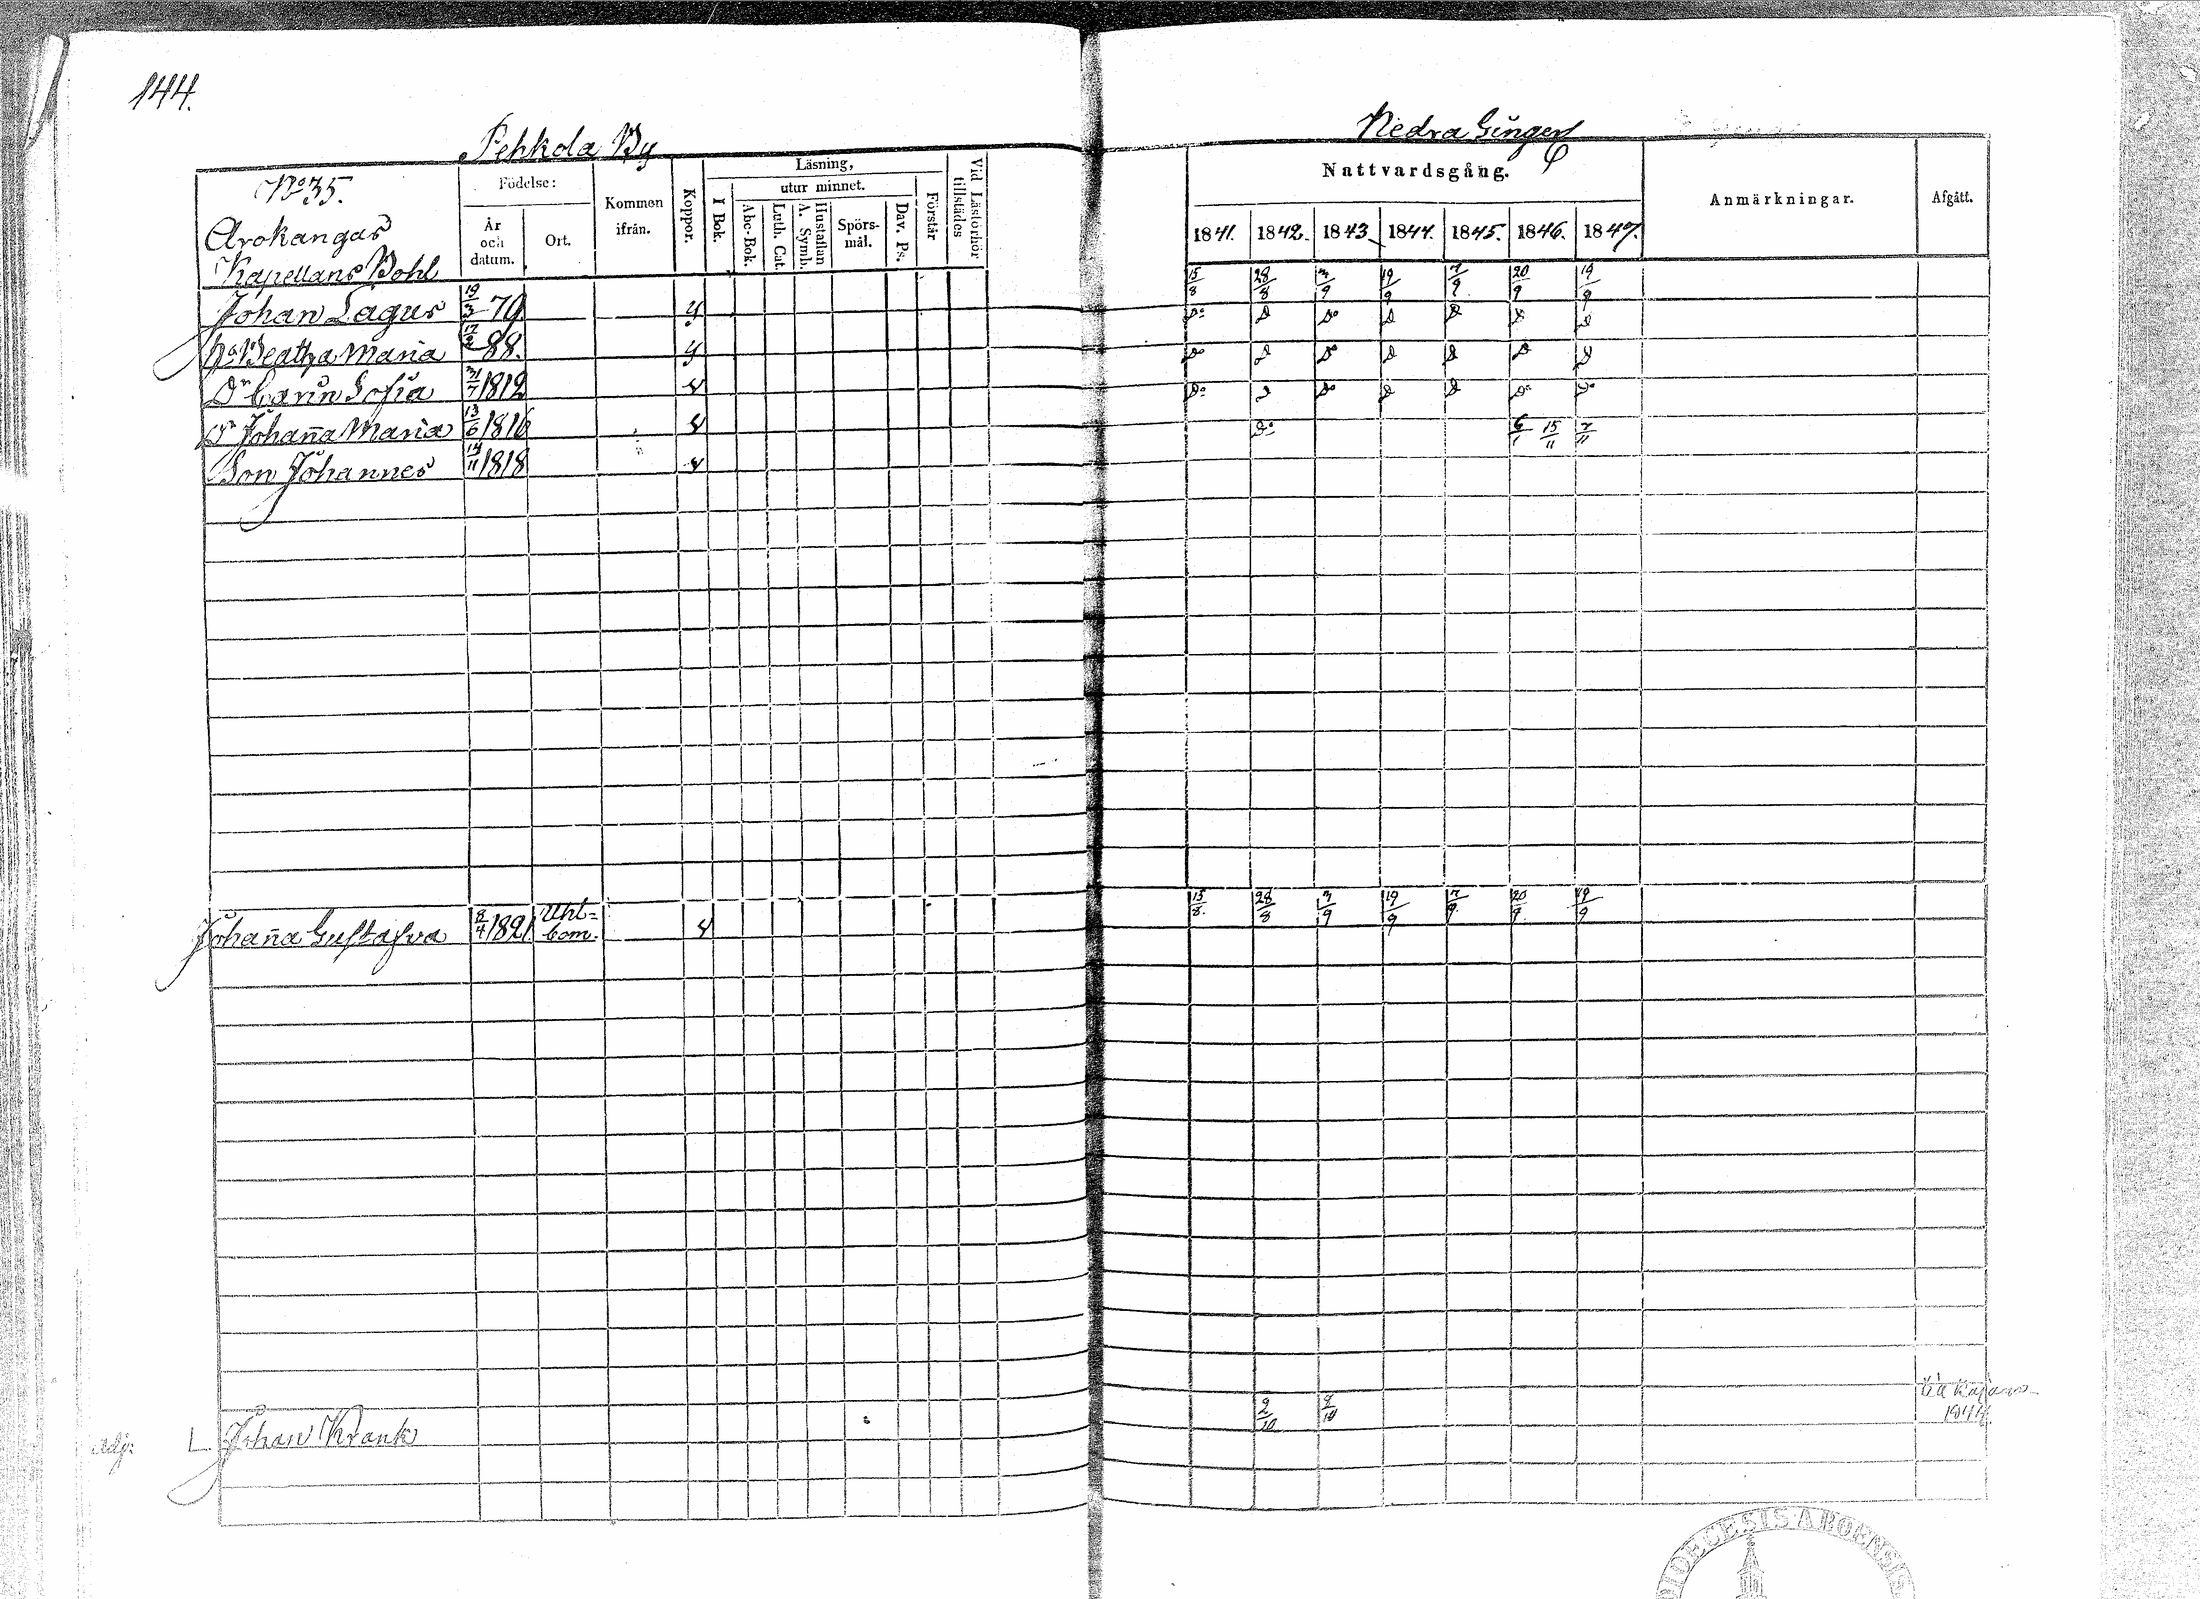 144.
Pehkola By
Nedra Gingen
No 35.
Arokangas
Kapellans Bohl
Födelse:
År och datum.
Ort.
Kommen ifrån.
Koppor.
Läsning,
I Bok.
utur minnet.
Abc-Bok.
Luth. Cat.
Hustaflan A. Symb.
Spörs-mål.
Dav. Ps.
Förstår
Vid Läsförhör tillstädes
Nattvardsgång.
1841. 1842. 1843. 1844. 1845. 1846. 1847.
Anmärkningar.
Afgått.
15/8 28/8 3/9 19/9 7/9 20/9 19/9
Johan Lagus 19/3 79.
Beata Maria 88.
Dr Carin Sofia 31/7 1812
Dr Johaña Maria 13/6 1816
Son Johannes 14/11 1818
Johaña Gustafva 8/4 1821. Uhl=
bom. 15/8. 28/8 3/9 19/9 7/9 20/9 19/9
Adj: Johan Krank 2/10 8/10
1844.
DIOECESIS ABOENSIS